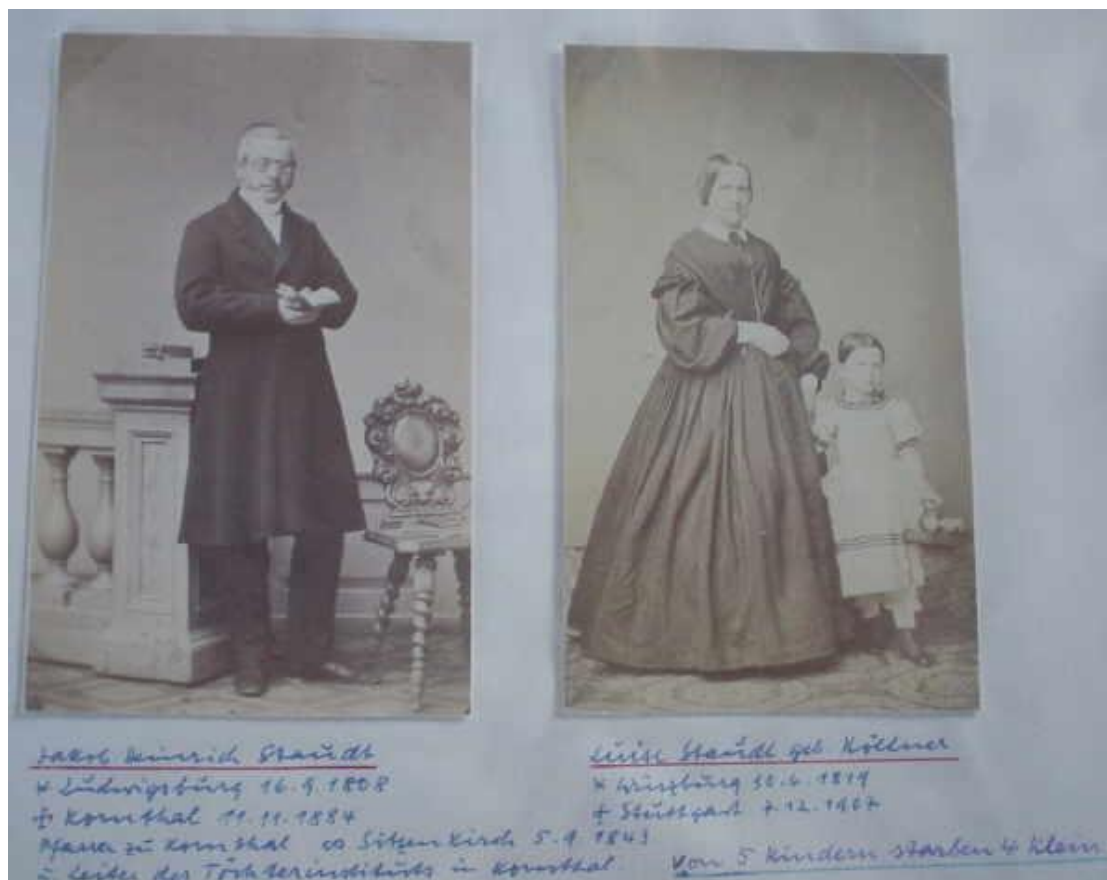 Jakob Heinrich Staudt
* Ludwigsburg 16.9.1808
+ Kornthal 11.11.1884
Pfarrer zu Kornthal ∞ Sitzenkirch 5.9.1843
Leiter des Töchterinstituts in Kornthal
Luise Staudt geb Köllner
* Würzburg 1819
+ Stuttgart 7.12.
Von 5 Kindern starben 4 klein